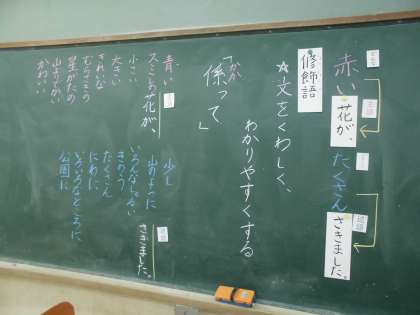 赤い
花が、
主語
たくさん
述語
さきました。
修飾語
☆文をくわしく、
わかりやすくする
「係って」
かか
青い
ピンクの花が、
小さい
大きい
きれいな
むらさきの
星がたの
かわいい
少し
山のように
いろんなしゅるい
きのう
たくさん
にわに
いろいろなところに
公園に
述語
さきました。